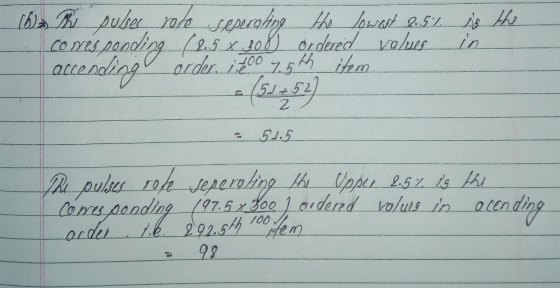 (b)⇒ The pulses rate seperating the lowest 2.5% is the
corresponding (2.5 × 300/100) ordered values in
accending order. i.e 7.5th item
= (51+52)/2
= 51.5
The pulses rate seperating the Upper 2.5% is the
corresponding (97.5 × 300/100) ordered values in accnding
order. i.e. 292.5th item
= 98